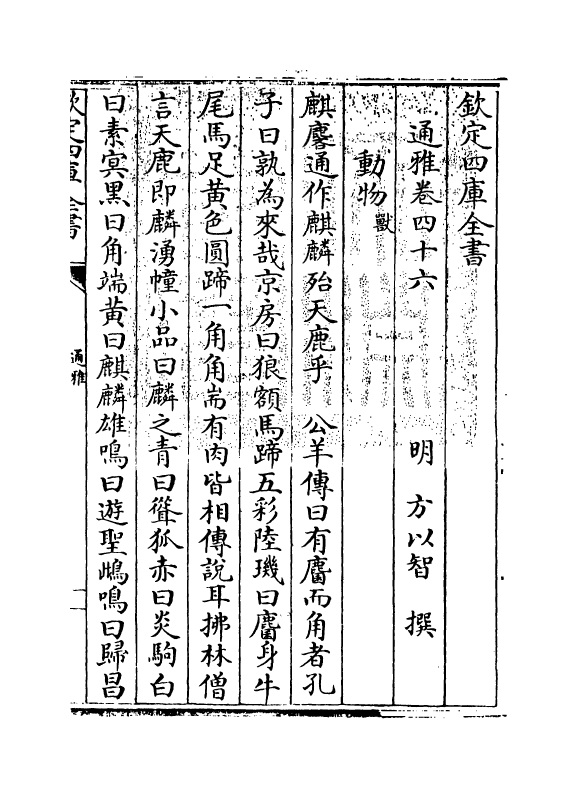 欽定四庫全書
通雅卷四十六
明 方以智 撰
動物獸
麒麐通作麒麟殆天鹿乎 公羊傳曰有麕而角者孔
子曰孰為來哉京房曰狼額馬蹄五彩陸璣曰麕身牛
尾馬足黃色圓蹄一角角耑有肉皆相傳說耳拂林僧
言天鹿即麟湧幢小品曰麟之青曰聳狐赤曰炎駒白
曰素㝠黑曰角端黃曰麒麟雄鳴曰遊聖鴟鳴曰歸昌
欽定四庫全書
通雅
一